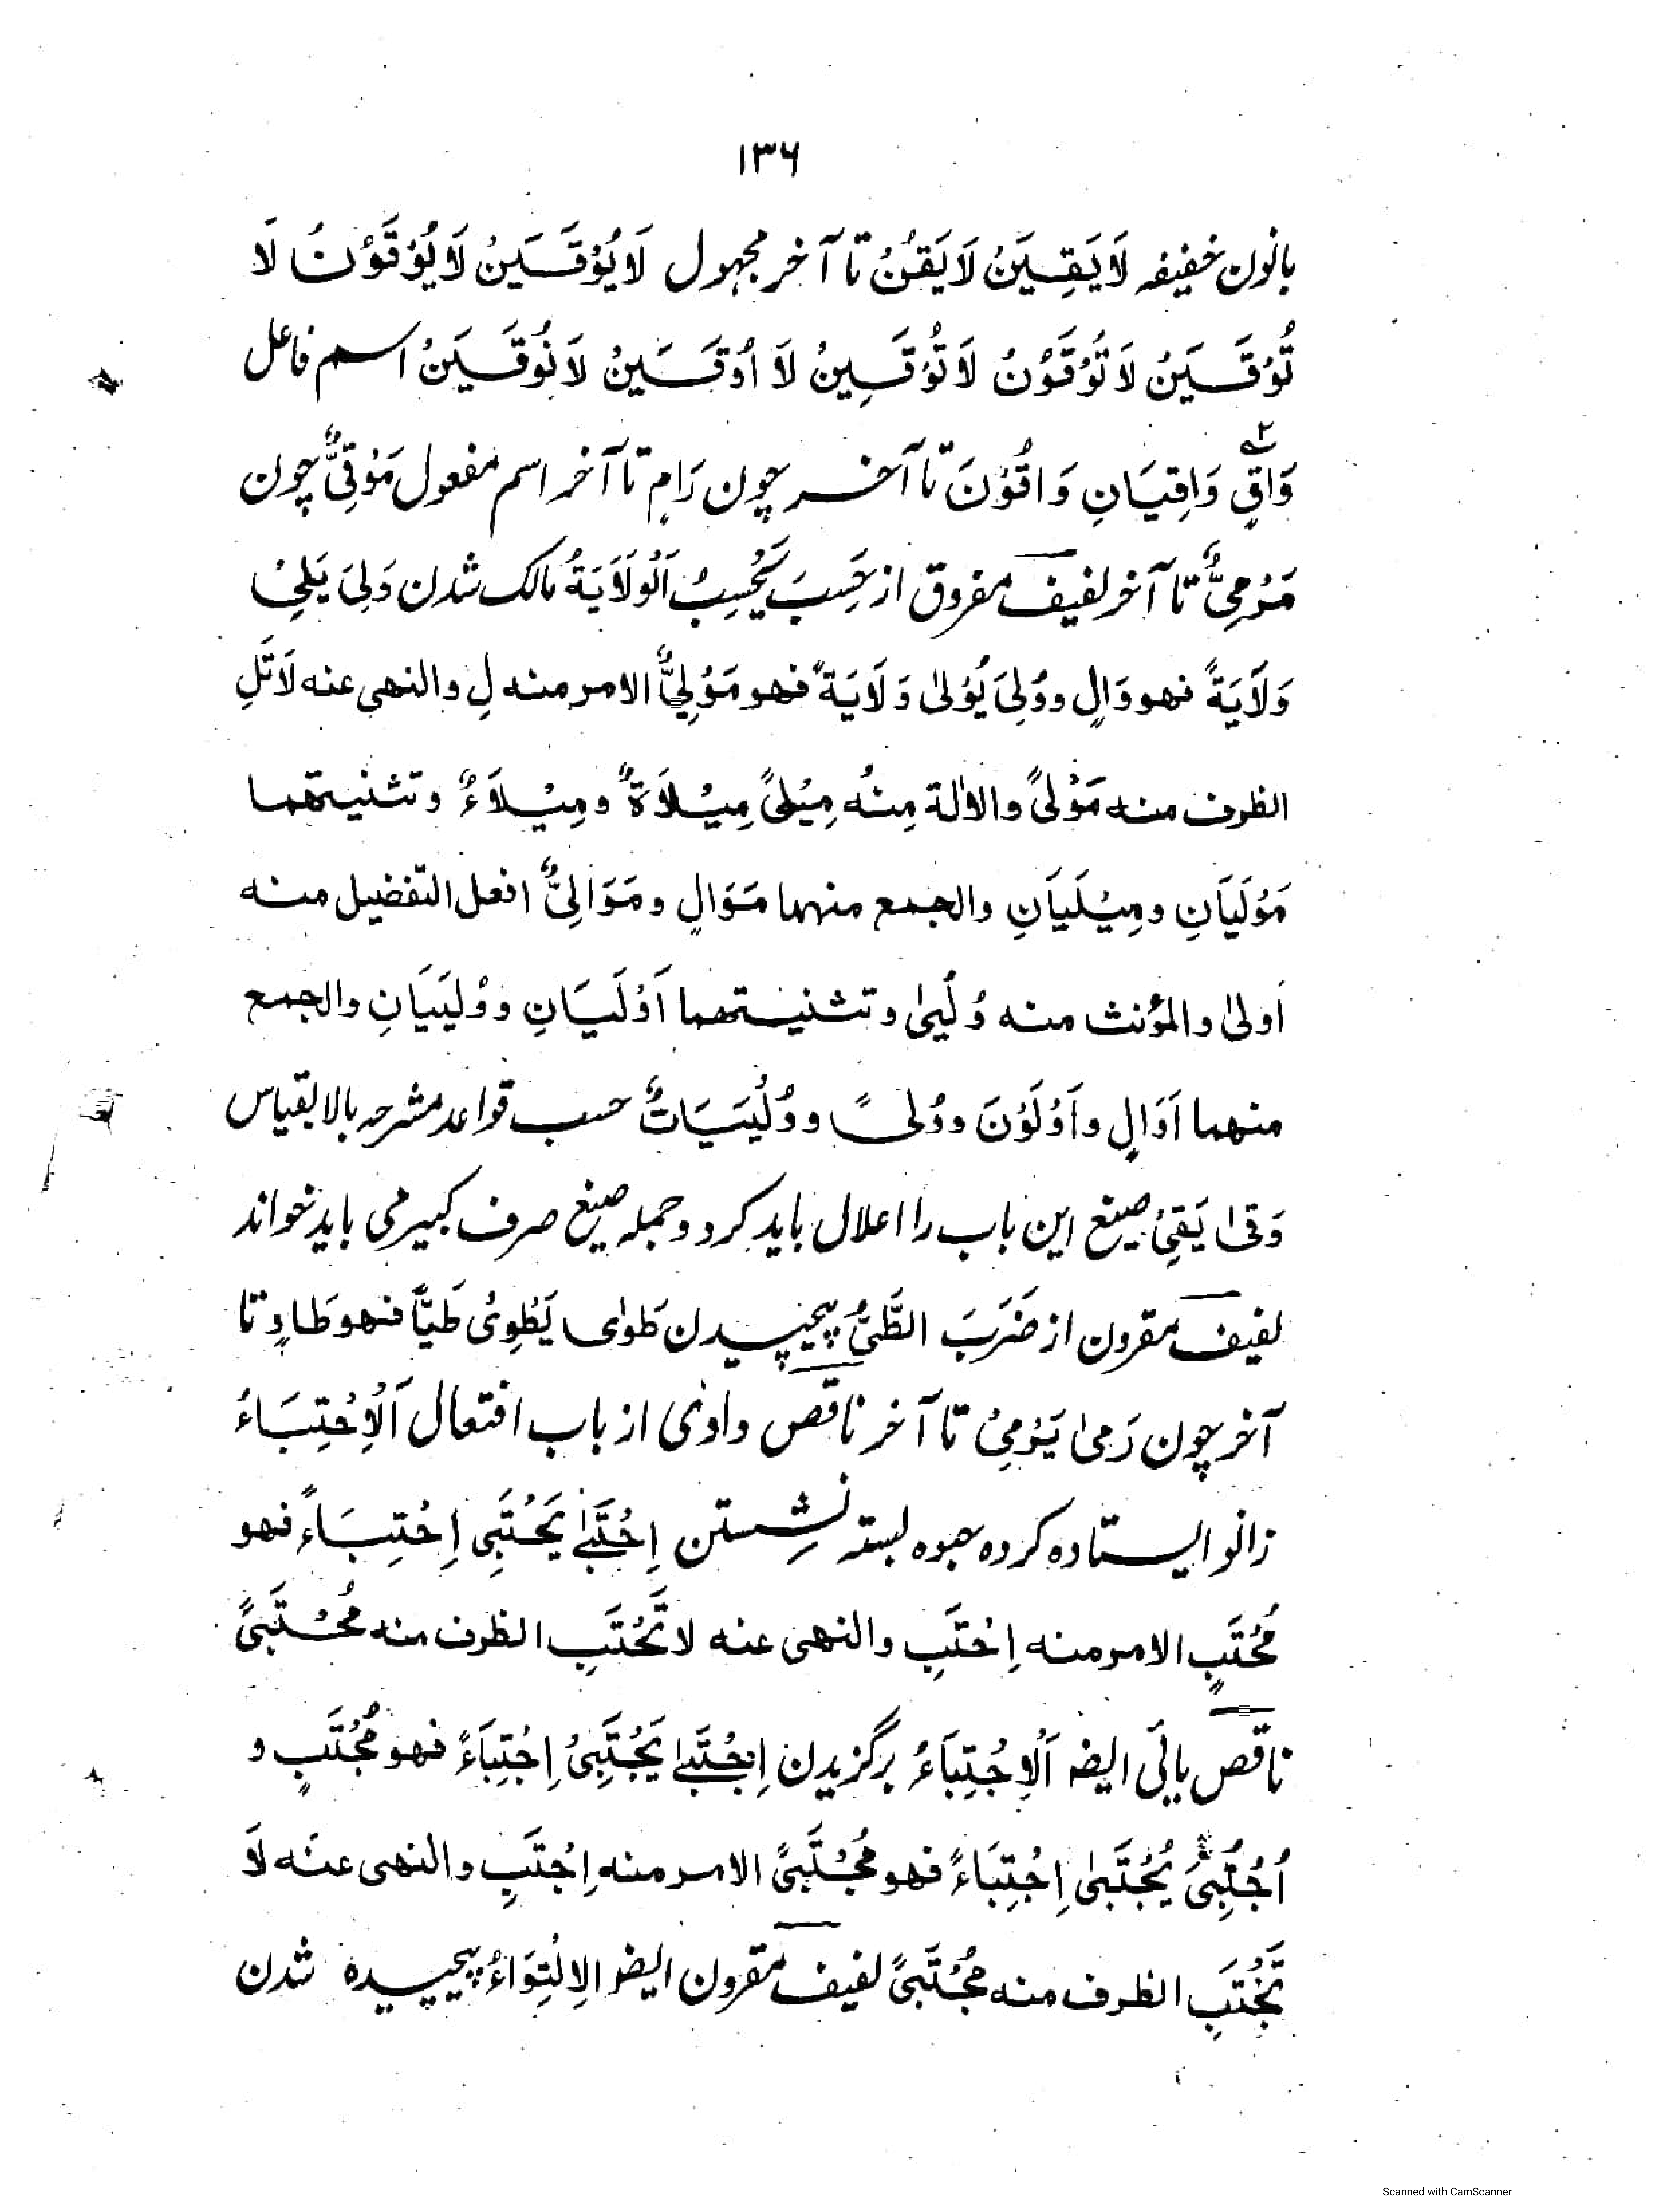 ۱۳۶
بانون خفیفہ لَایَقِیَنْ لَایَقُنْ تا آخر مجہول لَایُوْقَیَنْ لَایُوْقَوُنْ لَا
تُوْقَیَنْ لَاتُوْقَوُنْ لَاتُوْقَیِنْ لَا اُوْقَیَنْ لَانُوْقَیَنْ اسم فاعل
وَاقٍ وَاقِیَانِ وَاقُوْنَ تا آخر چون رَامٍ تا آخر اسم مفعول مَوْقِیٌّ چون
مَرْمِیٌّ تا آخر لفیف مفروق از حَسِبَ یَحْسِبُ اَلْوَلَایَۃُ مالک شدن وَلِیَ یَلِیْ
وَلَایَۃً فھو وَالٍ ووُلِیَ یُوْلیٰ وَلَایَۃً فھو مَوْلِیٌّ الامر منہ لِ والنھی عنہ لَاتَلِ
الظرف منہ مَوْلیً والاٰلۃ مِنْہُ مِیْلیً مِیْلَاۃٌ ومِیْلَاءٌ وتثنیتھما
مَوْلَیَانِ ومِیْلَیَانِ والجمع منہما مَوَالٍ ومَوَالِیُّ افعل التفضیل منہ
اَولیٰ والمؤنث منہ وُلْییٰ وتثنیتھما اَوْلَیَانِ ووُلْیَیَانِ والجمع
منھما اَوَالٍ واَوْلَوْنَ ووُلیً ووُلْیَیَاتٌ حسب قواعد مشرحہ بالا بقیاس
وَقیٰ یَقِیْ صیغ این باب را اعلال باید کرد و جملہ صیغ صرف کبیر می باید خواند
لفیف مقرون از ضَرَبَ الطَّیُّ پیچیدن طَوٰی یَطْوِیْ طَیًّا فھو طَاوٍ تا
آخر چون رَمیٰ یَرْمِیْ تا آخر ناقص واوی از باب افتعال اَلْاِحْتِبَاءُ
زانو ایستادہ کردہ حبوہ بستہ نشستن اِحْتَبٰے یَحْتَبِی اِحْتِبَاءً فھو
مُحْتَبٍ الامر منہ اِحْتَبِ والنھی عنہ لاتَحْتَبِ الظرف منہ مُحْتَبیً
ناقص یائی ایضہ اَلْاِجْتِبَاءُ برگزیدن اِجْتَبٰے یَجْتَبِیْ اِجْتِبَاءً فھو مُجْتَبٍ و
اُجْتُبِیَ یُجْتَبیٰ اِجْتِبَاءً فھو مُجْتَبیً الامر منہ اِجْتَبِ والنھی عنہ لَا
تَجْتَبِ الظرف منہ مُجْتَبیً لفیف مقرون ایضہ الِالْتِوَاءُ پیچیدہ شدن
Scanned with CamScanner